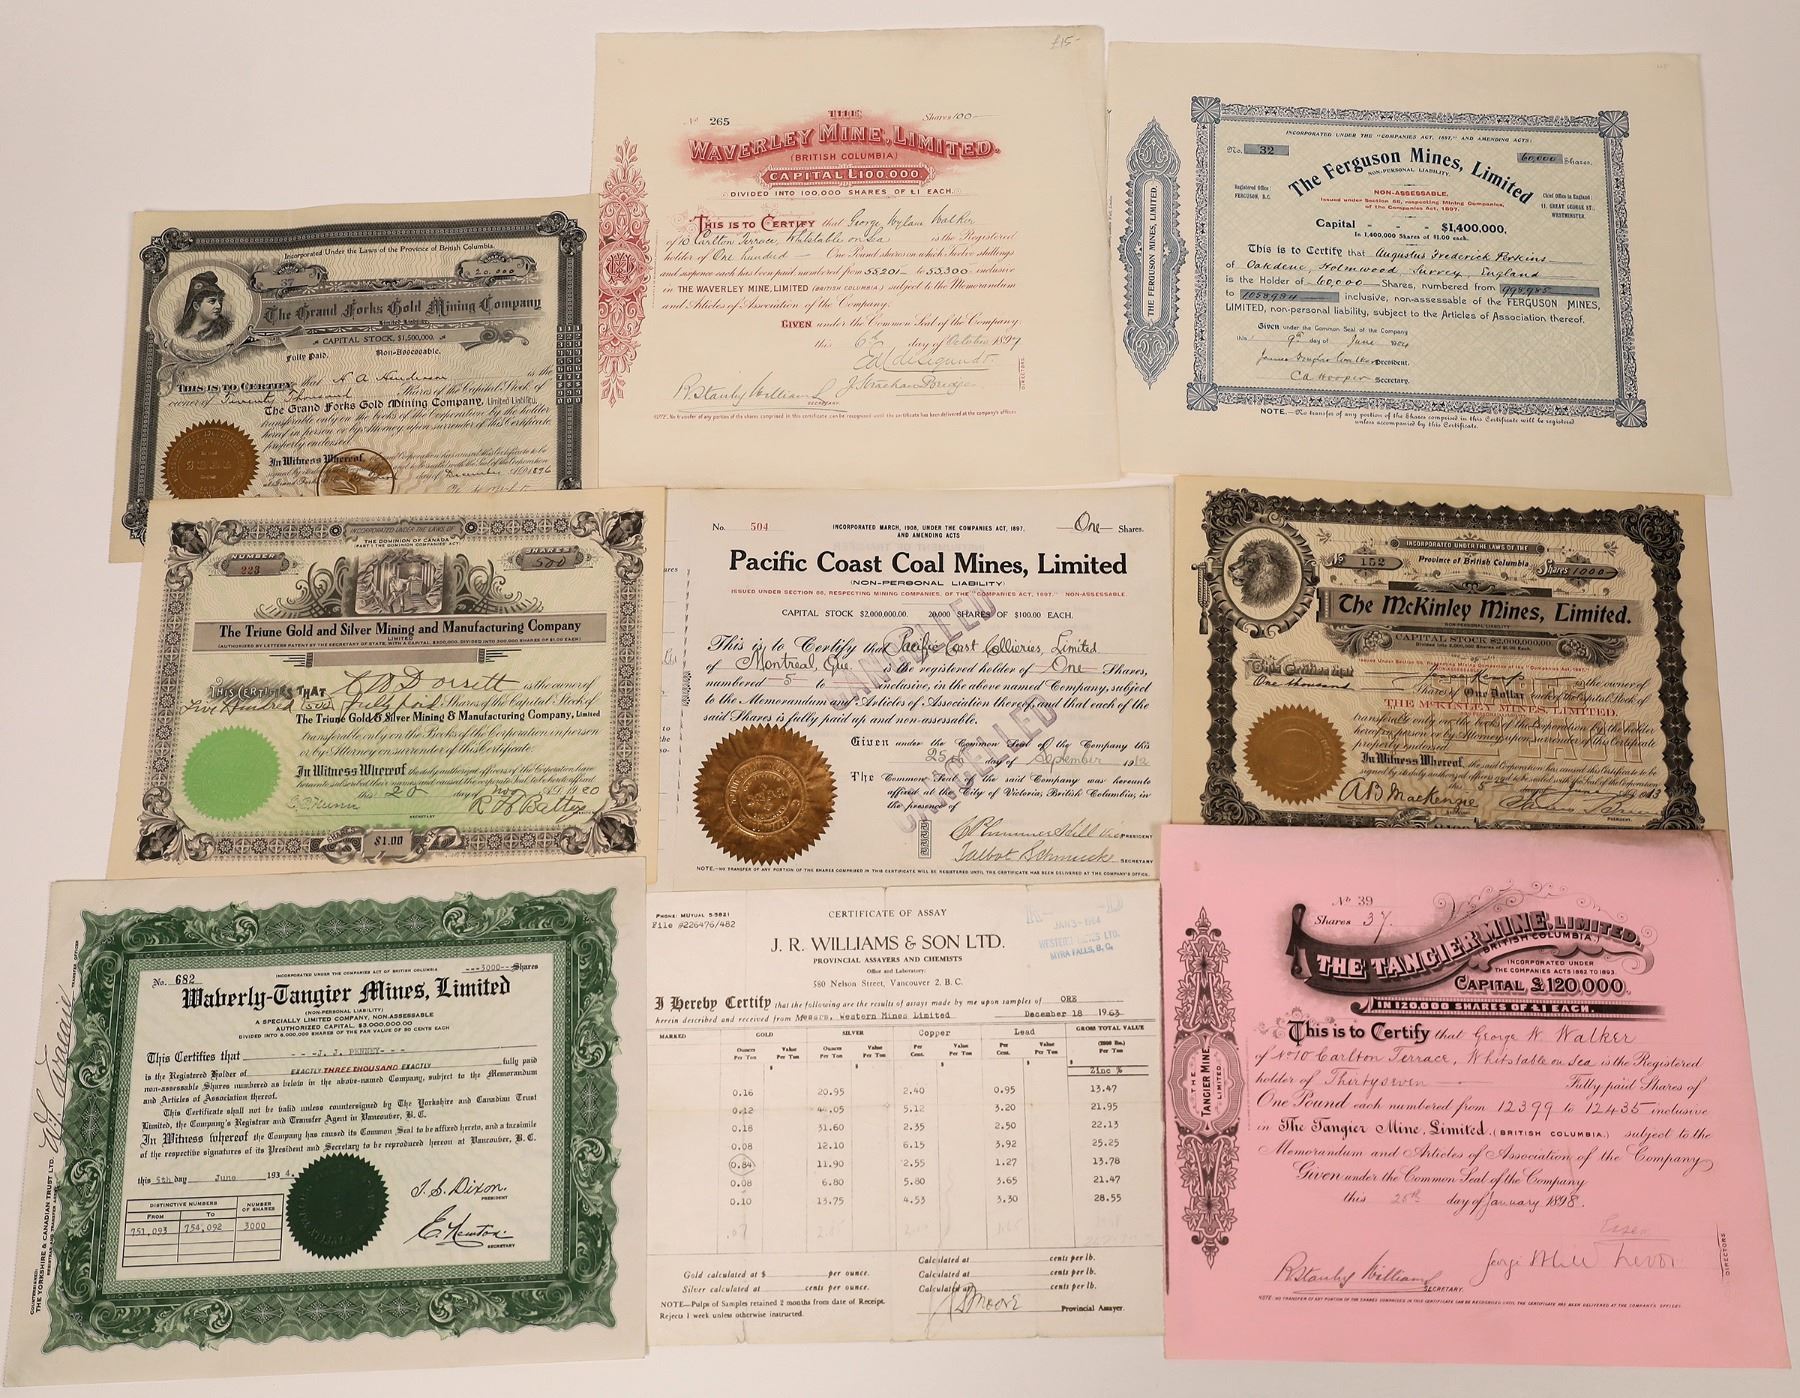 Incorporated Under the Laws of the Province of British Columbia.
37
20,000
The Grand Forks Gold Mining Company
Limited Liability.
CAPITAL STOCK, $1,500,000.
Fully Paid. Non-Assessable.
THIS IS TO CERTIFY that H A Henderson is the
owner of Twenty Thousand Shares of the Capital Stock of
The Grand Forks Gold Mining Company, Limited Liability.
transferable only on the books of the Corporation by the holder
hereof in person or by Attorney upon surrender of this Certificate
properly endorsed.
In Witness Whereof,
December A.D. 1896
£15-
No 265 Shares 100-
THE
WAVERLEY MINE, LIMITED.
(BRITISH COLUMBIA)
CAPITAL £100,000.
DIVIDED INTO 100,000 SHARES OF £1 EACH.
THIS IS TO CERTIFY that George Wylam Walker
of 10 Carlton Terrace, Whitstable on Sea is the Registered
holder of One hundred — One Pound shares on which Twelve shillings
and sixpence each has been paid numbered from 55201 to 55300 inclusive
in THE WAVERLEY MINE, LIMITED (BRITISH COLUMBIA) subject to the Memorandum
and Articles of Association of the Company.
GIVEN under the Common Seal of the Company
this 6th day of October 1897
R Stanley Williams
SECRETARY
DIRECTORS
NOTE.-No transfer of any portion of the shares comprised in this certificate can be recognised until the certificate has been delivered at the company's offices
THE FERGUSON MINES, LIMITED.
INCORPORATED UNDER THE "COMPANIES ACT, 1897," AND AMENDING ACTS:
No. 32 60,000 Shares.
The Ferguson Mines, Limited
NON-PERSONAL LIABILITY.
Registered Office:
FERGUSON, B.C.
Chief Office in England:
11, GREAT GEORGE ST.,
WESTMINSTER.
NON-ASSESSABLE.
Issued under Section 56, respecting Mining Companies,
of the Companies Act, 1897.
Capital - - - $1,400,000,
In 1,400,000 Shares of $1.00 each.
This is to Certify that Augustus Frederick Perkins
of Oakdene, Holmwood, Surrey, England
is the Holder of 60,000 Shares, numbered from 998,985
to 1058,984 inclusive, non-assessable of the FERGUSON MINES,
LIMITED, non-personal liability, subject to the Articles of Association thereof.
Given under the Common Seal of the Company
this 9th day of June 1904
President.
C A Hooper Secretary.
NOTE.—No transfer of any portion of the Shares comprised in this Certificate will be registered
unless accompanied by this Certificate.
INCORPORATED UNDER THE LAWS OF
THE DOMINION OF CANADA
(PART 1 THE DOMINION COMPANIES' ACT)
NUMBER
223
SHARES
500
The Triune Gold and Silver Mining and Manufacturing Company
LIMITED
(AUTHORIZED BY LETTERS PATENT BY THE SECRETARY OF STATE, WITH A CAPITAL, $300,000, DIVIDED INTO 300,000 SHARES OF $1.00 EACH)
THIS CERTIFIES THAT C W Dorsett is the owner of
Five Hundred (500) fully paid Shares of the Capital Stock of
The Triune Gold & Silver Mining & Manufacturing Company, Limited
transferable only on the Books of the Corporation in person
or by Attorney on surrender of this Certificate.
In Witness Whereof the duly authorized officers of the Corporation have
hereunto subscribed their names and caused the corporate Seal to be hereto affixed
this 20 day of Nov A.D. 1920
SECRETARY
SHARES $1.00 EACH
No. 504 INCORPORATED MARCH, 1908, UNDER THE COMPANIES ACT, 1897,
AND AMENDING ACTS
One Shares.
Pacific Coast Coal Mines, Limited
(NON-PERSONAL LIABILITY)
ISSUED UNDER SECTION 56, RESPECTING MINING COMPANIES, OF THE "COMPANIES ACT, 1897." NON-ASSESSABLE.
CAPITAL STOCK $2,000,000.00. 20,000 SHARES OF $100.00 EACH.
This is to Certify that Pacific Coast Collieries, Limited
of Montreal, Que. is the registered holder of One Shares,
numbered 5 to inclusive, in the above named Company, subject
to the Memorandum and Articles of Association thereof, and that each of the
said Shares is fully paid up and non-assessable.
CANCELLED
CANCELLED
Given under the Common Seal of the Company this
25 day of September 1912
The Common Seal of the said Company was hereunto
affixed at the City of Victoria, British Columbia, in
the presence of
PRESIDENT
Talbot Schmucke SECRETARY
NOTE.-NO TRANSFER OF ANY PORTION OF THE SHARES COMPRISED IN THIS CERTIFICATE WILL BE REGISTERED UNTIL THE CERTIFICATE HAS BEEN DELIVERED AT THE COMPANY'S OFFICE.
INCORPORATED UNDER THE LAWS OF THE
Province of British Columbia.
No 152 Shares 1000
The McKinley Mines, Limited.
NON-PERSONAL LIABILITY
CAPITAL STOCK $2,000,000.00.
Divided into 2,000,000 Shares of $1.00 Each.
This Certifies that is the owner of
One thousand Shares of One Dollar each of the Capital Stock of
THE McKINLEY MINES, LIMITED,
transferable only on the books of the Corporation by the holder
hereof in person or by Attorney upon surrender of this Certificate
properly endorsed.
In Witness Whereof, the said Corporation has caused this Certificate to be
signed by its duly authorized officers and to be sealed with the Seal of the Corporation
this 5 day of June A.D. 1913
A B Mackenzie
President
COUNTERSIGNED:
THE YORKSHIRE & CANADIAN TRUST LTD.
REGISTRAR AND TRANSFER AGENT
TRANSFER OFFICER
INCORPORATED UNDER THE COMPANIES ACT OF BRITISH COLUMBIA
No. 682 ---3000--Shares
Waverly-Tangier Mines, Limited
(NON-PERSONAL LIABILITY)
A SPECIALLY LIMITED COMPANY, NON-ASSESSABLE
AUTHORIZED CAPITAL $3,000,000.00
DIVIDED INTO 6,000,000 SHARES OF THE PAR VALUE OF 50 CENTS EACH
This Certifies that ---J. J. PENNEY---
is the Registered Holder of EXACTLY THREE THOUSAND EXACTLY fully paid
non-assessable Shares numbered as below in the above-named Company, subject to the Memorandum
and Articles of Association thereof.
This Certificate shall not be valid unless countersigned by The Yorkshire and Canadian Trust
Limited, the Company's Registrar and Transfer Agent in Vancouver, B. C.
In Witness whereof the Company has caused its Common Seal to be affixed hereto, and a facsimile
of the respective signatures of its President and Secretary to be reproduced hereon at Vancouver, B. C.
this 5th day June 1934.
DISTINCTIVE NUMBERS NUMBER OF SHARES
FROM TO
751,093 754,092 3000
J. S. Dixon
PRESIDENT
E. Newton
SECRETARY
PHONE: MUTUAL 5-5821
File #226476/482
CERTIFICATE OF ASSAY
JAN 3-1964
WESTERN MINES LTD.
MYRA FALLS, B. C.
J. R. WILLIAMS & SON LTD.
PROVINCIAL ASSAYERS AND CHEMISTS
Office and Laboratory:
580 Nelson Street, Vancouver 2, B. C.
I Hereby Certify that the following are the results of assays made by me upon samples of ORE
herein described and received from Messrs. Western Mines Limited December 18 1963
MARKED GOLD SILVER Copper Lead GROSS TOTAL VALUE
Ounces Per Ton Value Per Ton Ounces Per Ton Value Per Ton Per Cent. Value Per Ton Per Cent. Value Per Ton (2000 lbs.) Per Ton
$ $ $ $ $
Zinc %
0.16 20.95 2.40 0.95 13.47
0.12 44.05 5.12 3.20 21.95
0.18 31.60 2.35 2.50 22.13
0.08 12.10 6.15 3.92 25.25
0.84 11.90 2.55 1.27 13.78
0.08 6.80 5.80 3.65 21.47
0.10 13.75 4.53 3.30 28.55
Gold calculated at $ per ounce. Calculated at cents per lb.
Calculated at cents per lb.
Silver calculated at cents per ounce. Calculated at cents per lb.
NOTE—Pulps of Samples retained 2 months from date of Receipt.
Rejects 1 week unless otherwise instructed.
Provincial Assayer.
THE TANGIER MINE LIMITED.
No 39
Shares 37.
THE TANGIER MINE, LIMITED.
(BRITISH COLUMBIA)
INCORPORATED UNDER
THE COMPANIES ACTS 1862 TO 1893.
CAPITAL £120,000.
IN 120,000 SHARES OF £1 EACH.
This is to Certify that George W. Walker
of No 10 Carlton Terrace, Whitstable on Sea is the Registered
holder of Thirtyseven Fully paid Shares of
One Pound each numbered from 12399 to 12435 inclusive
in The Tangier Mine, Limited. (BRITISH COLUMBIA.) subject to the
Memorandum and Articles of Association of the Company
Given under the Common Seal of the Company
this 26th day of January 1898.
Essex
R Stanley Williams
SECRETARY.
DIRECTORS
NOTE. NO TRANSFER OF ANY PORTION OF THE SHARES COMPRISED IN THIS CERTIFICATE CAN BE RECOGNISED UNTIL THE CERTIFICATE HAS BEEN DELIVERED AT THE COMPANY'S OFFICES